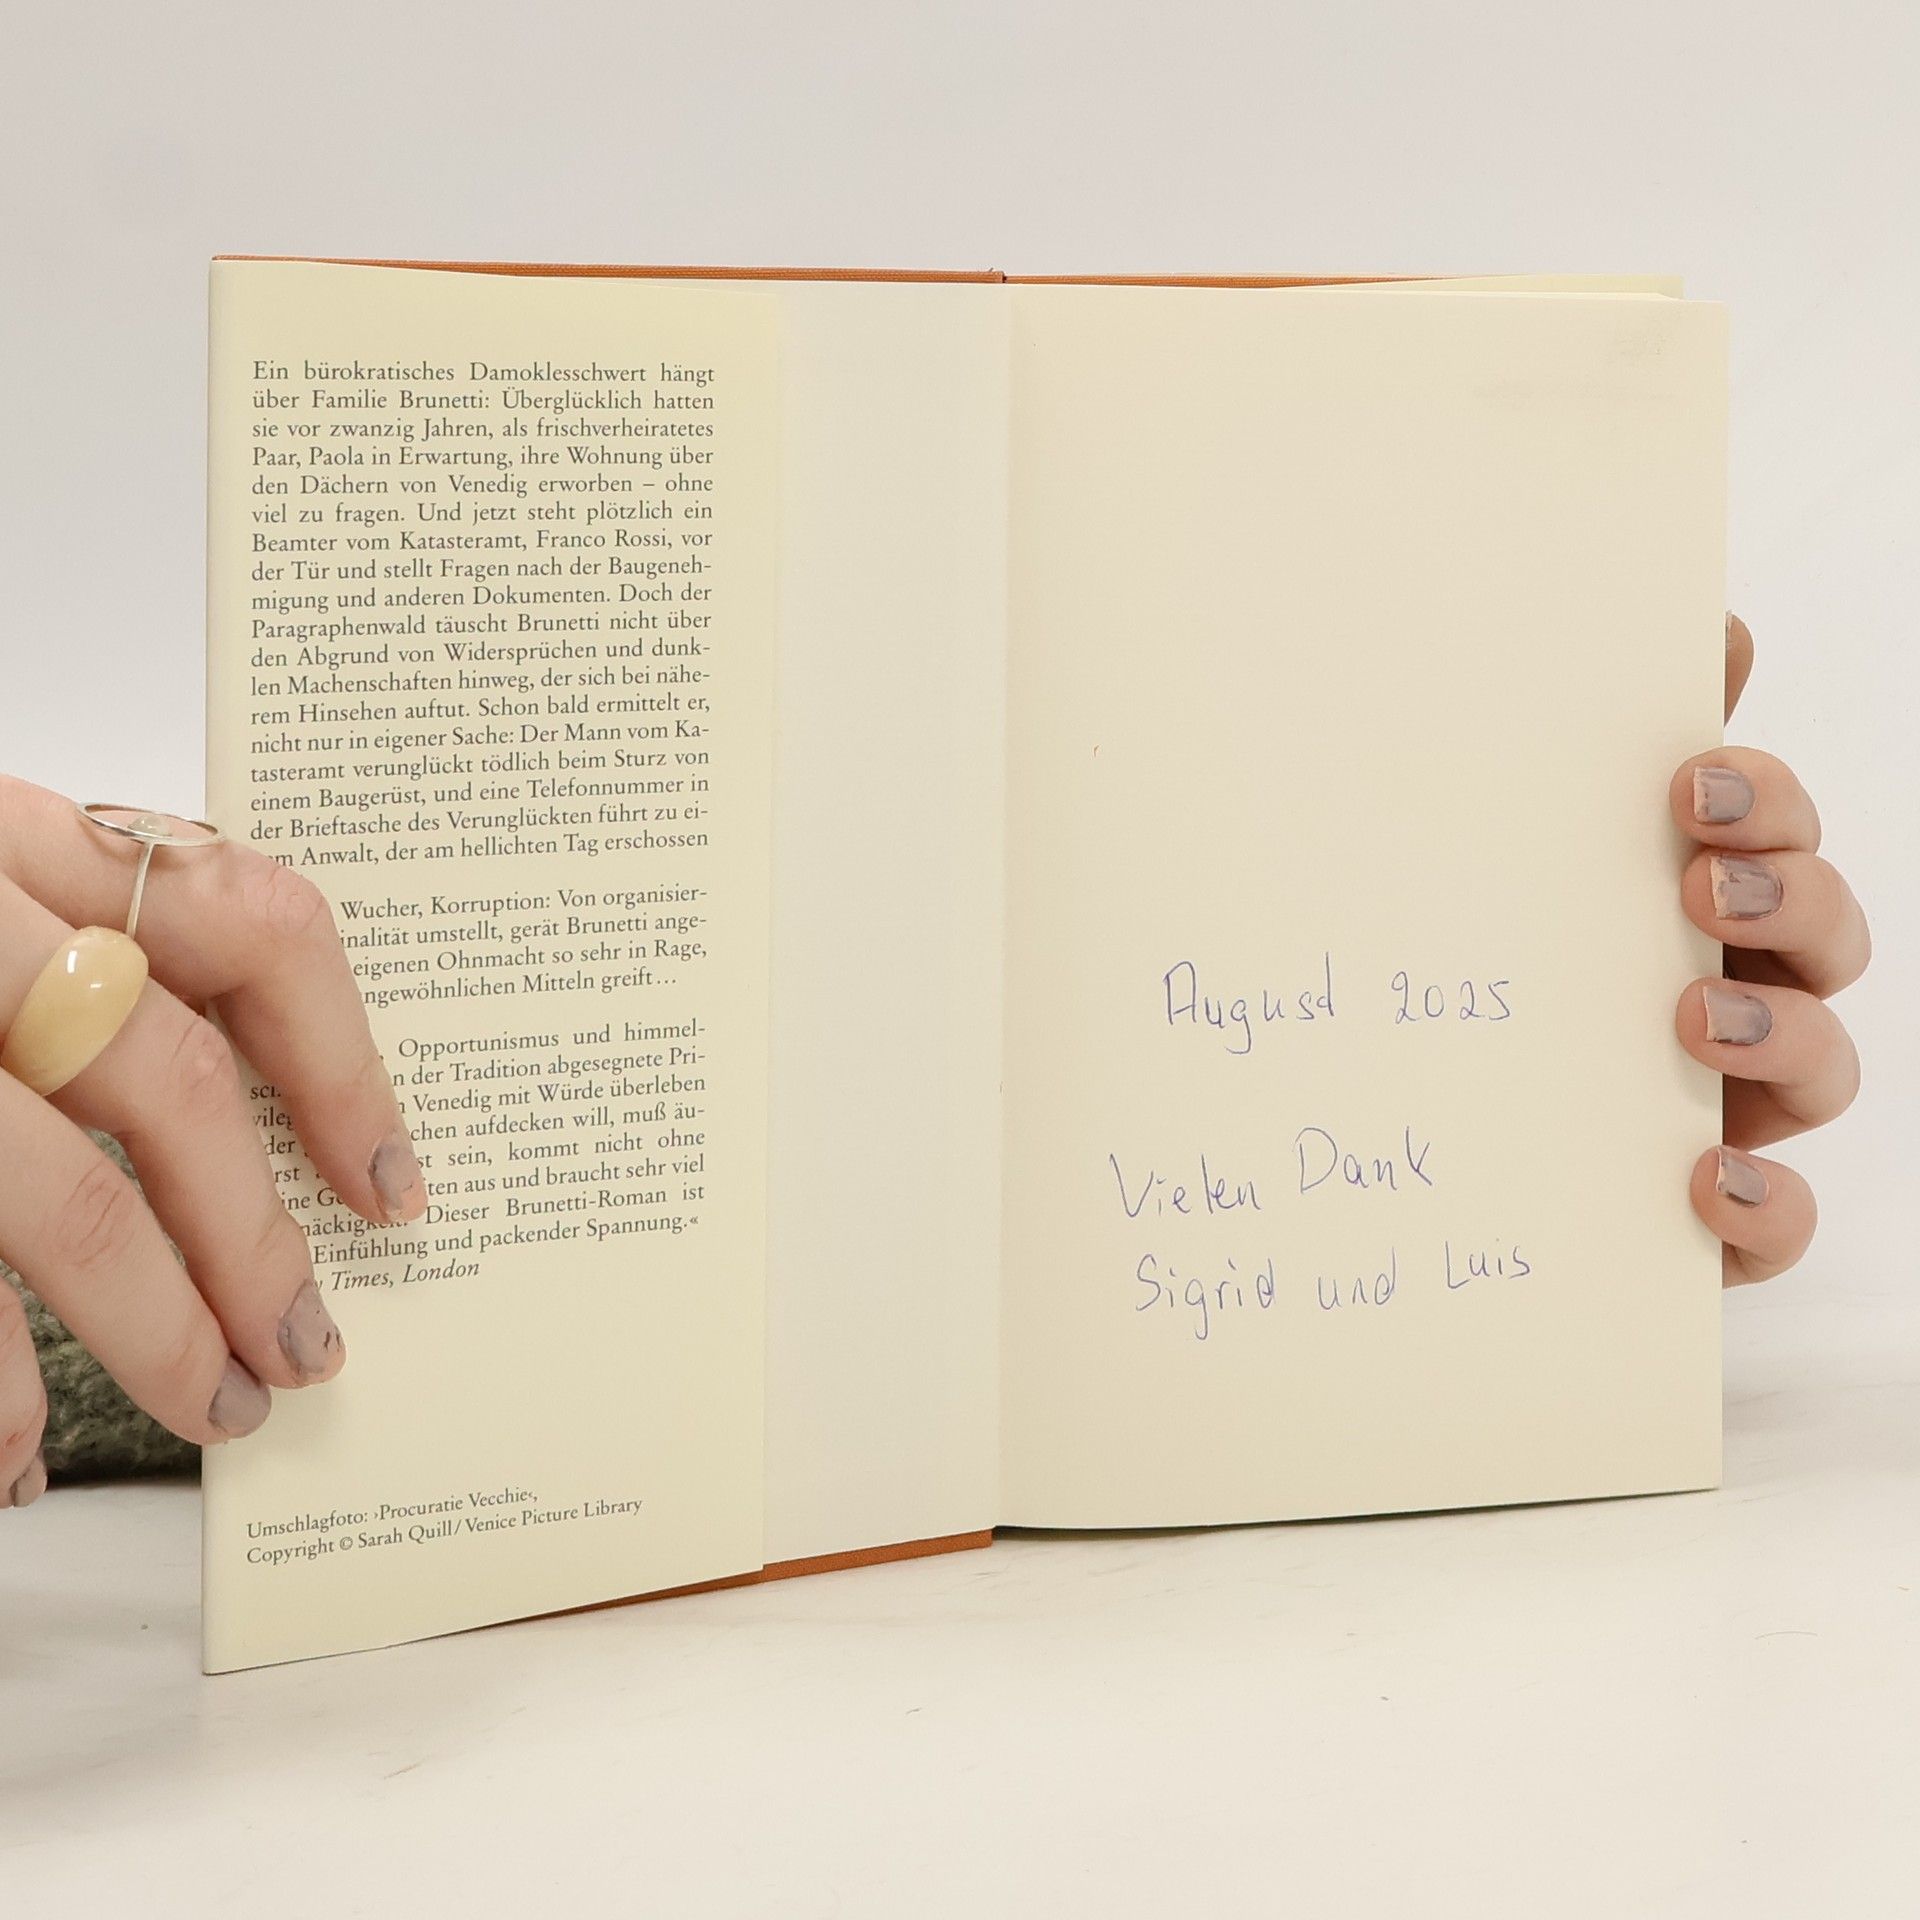 Ein bürokratisches Damoklesschwert hängt
über Familie Brunetti: Überglücklich hatten
sie vor zwanzig Jahren, als frischverheiratetes
Paar, Paola in Erwartung, ihre Wohnung über
den Dächern von Venedig erworben – ohne
viel zu fragen. Und jetzt steht plötzlich ein
Beamter vom Katasteramt, Franco Rossi, vor
der Tür und stellt Fragen nach der Baugeneh-
migung und anderen Dokumenten. Doch der
Paragraphenwald täuscht Brunetti nicht über
den Abgrund von Widersprüchen und dunk-
len Machenschaften hinweg, der sich bei nähe-
rem Hinsehen auftut. Schon bald ermittelt er,
nicht nur in eigener Sache: Der Mann vom Ka-
tasteramt verunglückt tödlich beim Sturz von
einem Baugerüst, und eine Telefonnummer in
der Brieftasche des Verunglückten führt zu ei-
Anwalt, der am hellichten Tag erschossen
Wucher, Korruption: Von organisier-
umstellt, gerät Brunetti ange-
eigenen Ohnmacht so sehr in Rage,
Mitteln greift…
Opportunismus und himmel-
der Tradition abgesegnete Pri-
Venedig mit Würde überleben
aufdecken will, muß äu-
sein, kommt nicht ohne
aus und braucht sehr viel
Dieser Brunetti-Roman ist
Einfühlung und packender Spannung.«
Times, London
Umschlagfoto: ›Procuratie Vecchie‹,
Copyright © Sarah Quill/Venice Picture Library
August 2025
Vielen Dank
Sigrid und Luis